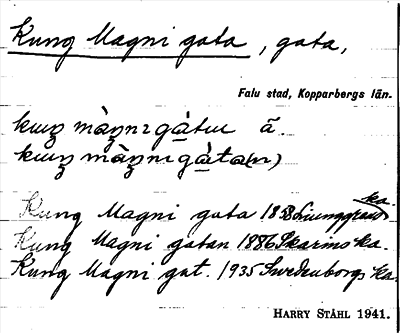 Kung Magni gata, gata,
Falu stad, Kopparbergs län.
kuŋ màŋnı gàtuı ä.
kuŋ màŋnı gàta(n)
Kung Magni gata 1858 Ljunggrens ka.
Kung Magni gatan 1886 Skarins ka.
Kung Magni gat. 1935 Swedenborgs ka.
HARRY STÅHL 1941.